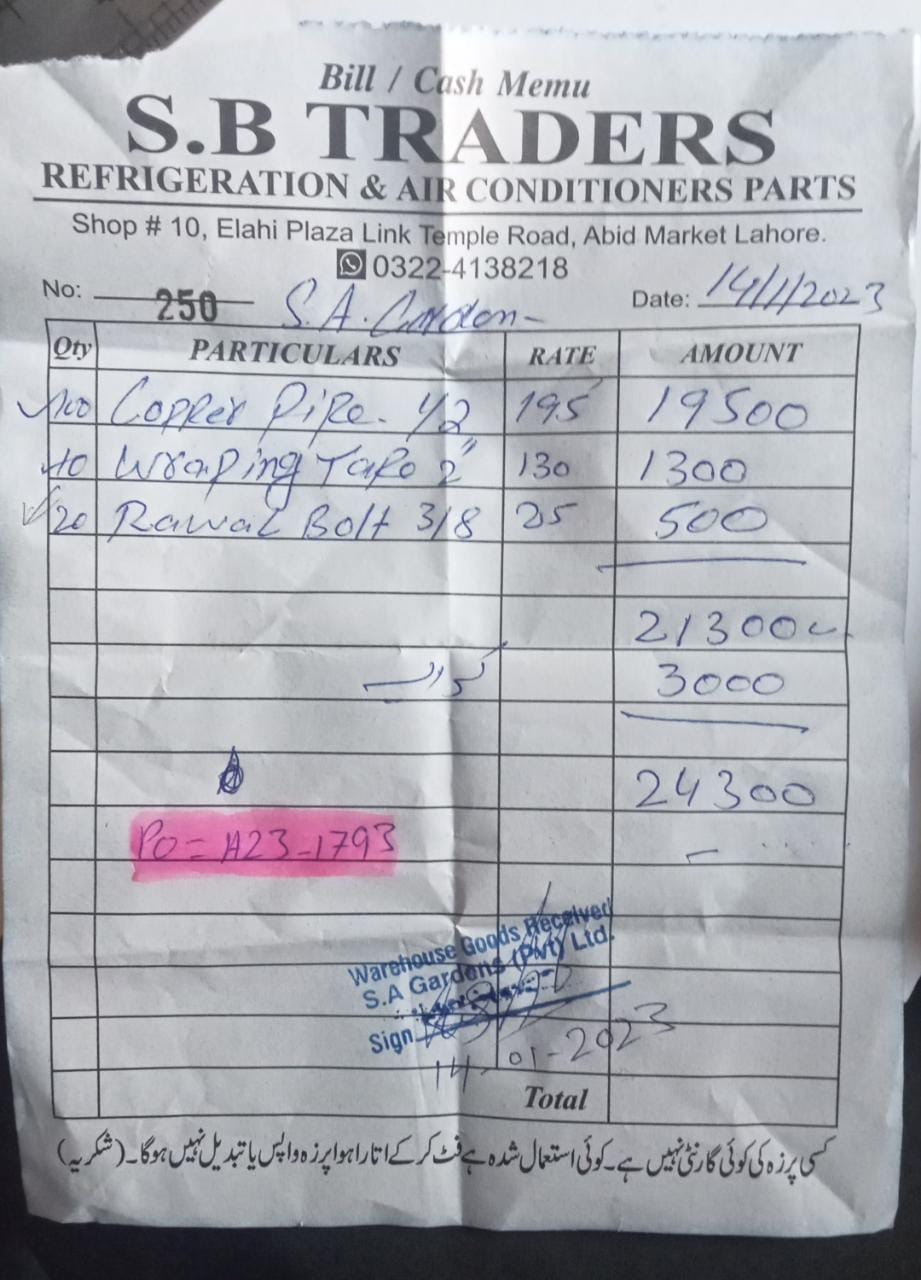 Bill / Cash Memu
S.B TRADERS
REFRIGERATION & AIR CONDITIONERS PARTS
Shop # 10, Elahi Plaza Link Temple Road, Abid Market Lahore.
0322-4138218
No: 250 S.A. Garden - Date: 14/1/2023
Qty PARTICULARS RATE AMOUNT
100 Copper Pipe - 1/2 195 19500
10 Wraping Tape 2" 130 1300
20 Rawal Bolt 3/8 25 500
21300
کرایہ 3000
24300
PO = A23-1793
Warehouse Goods Received
S.A Gardens (Pvt) Ltd.
Sign
14-01-2023
Total
کسی پرزہ کی کوئی گارنٹی نہیں ہے۔ کوئی استعمال شدہ ہے فٹ کر کے اتارا ہوا پرزہ واپس یا تبدیل نہیں ہوگا۔ (شکریہ)